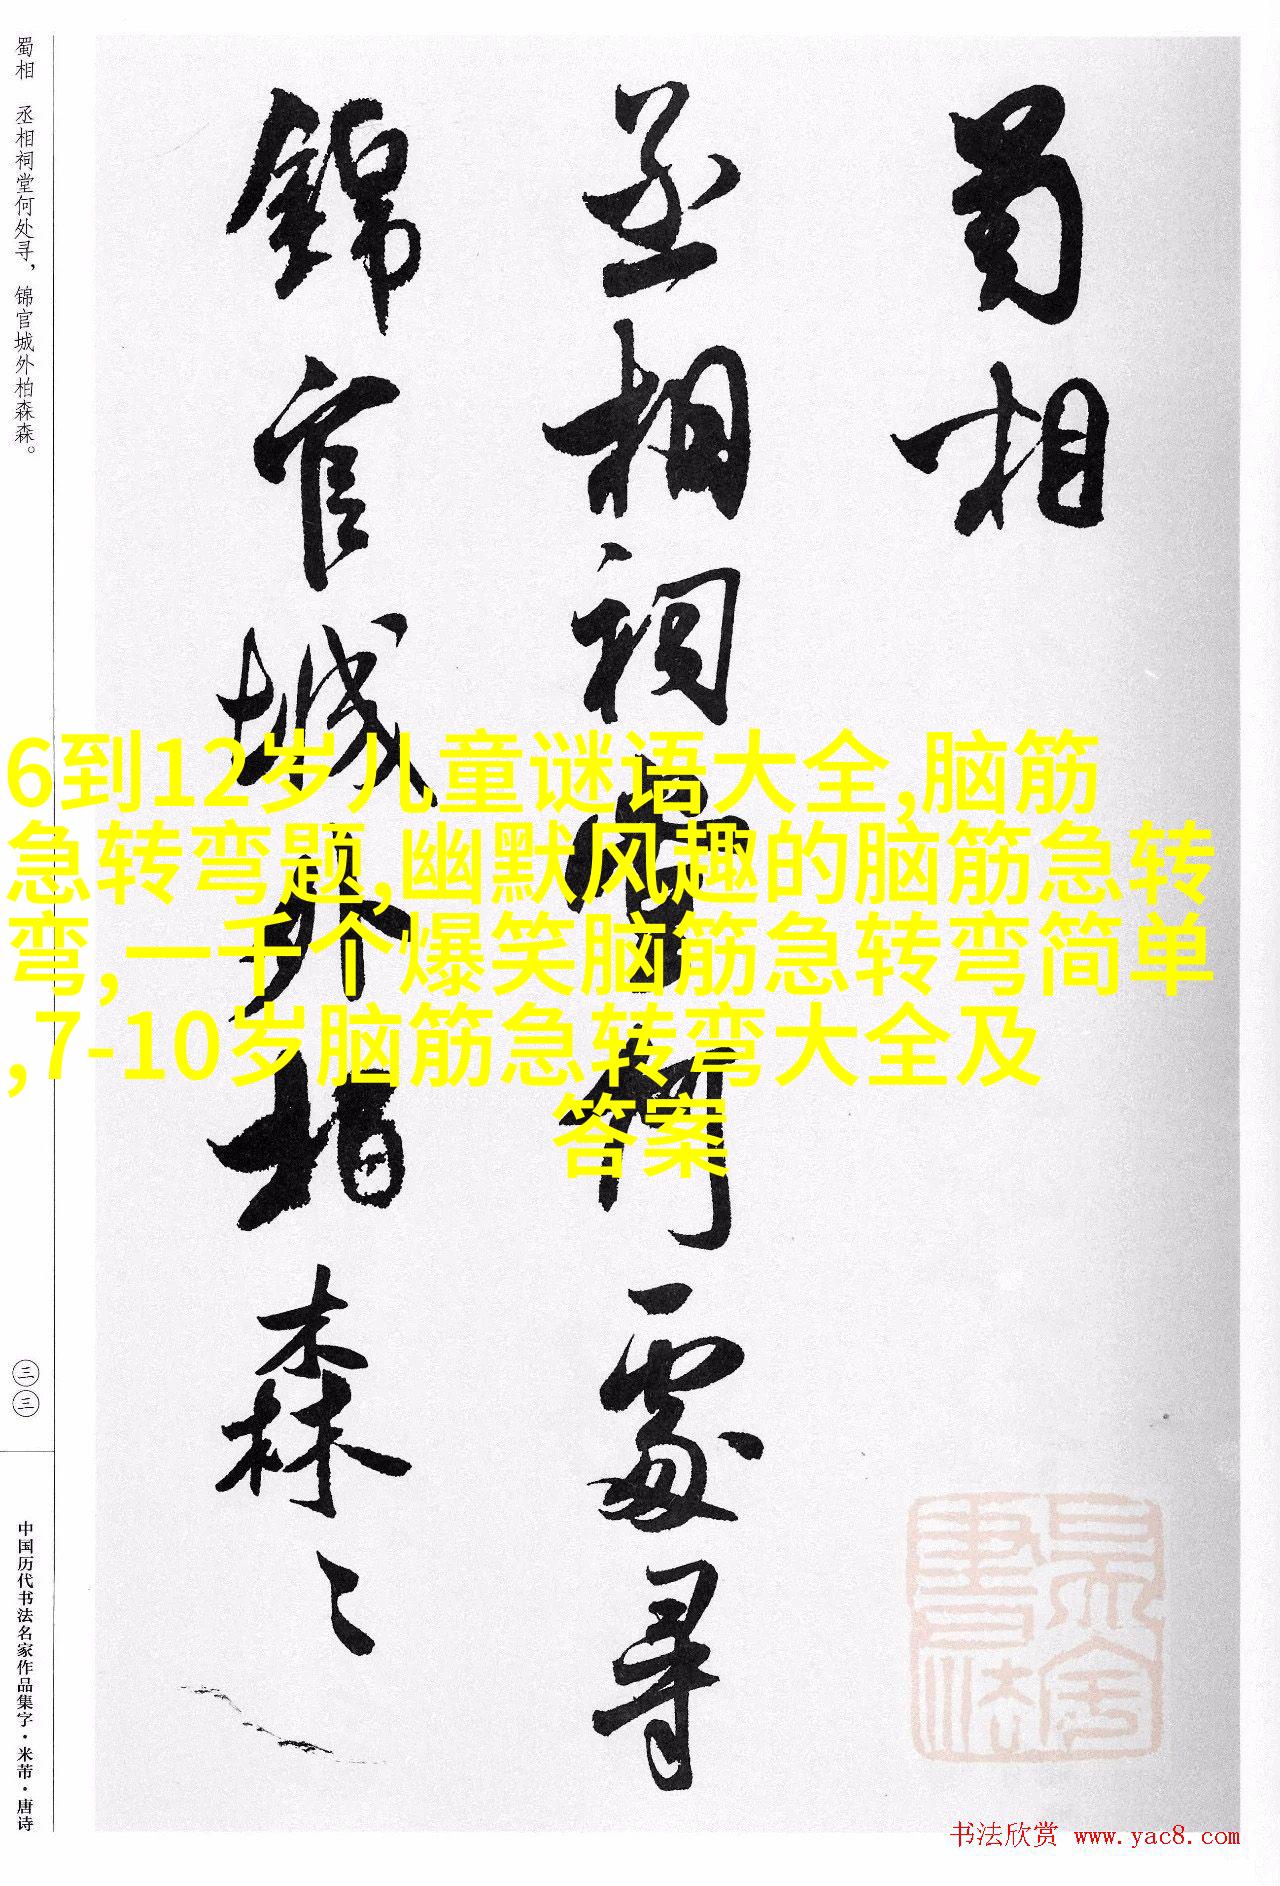 蜀相
丞相祠堂何處寻
錦官城外柏森〻
蜀相 丞相祠堂何处寻，锦官城外柏森森。
三三
中国历代书法名家作品集字·米芾·唐诗
6到12岁儿童谜语大全,脑筋
急转弯题,幽默风趣的脑筋急转
弯,一千个爆笑脑筋急转弯简单
,7-10岁脑筋急转弯大全及
答案
书法欣赏 www.yac8.com